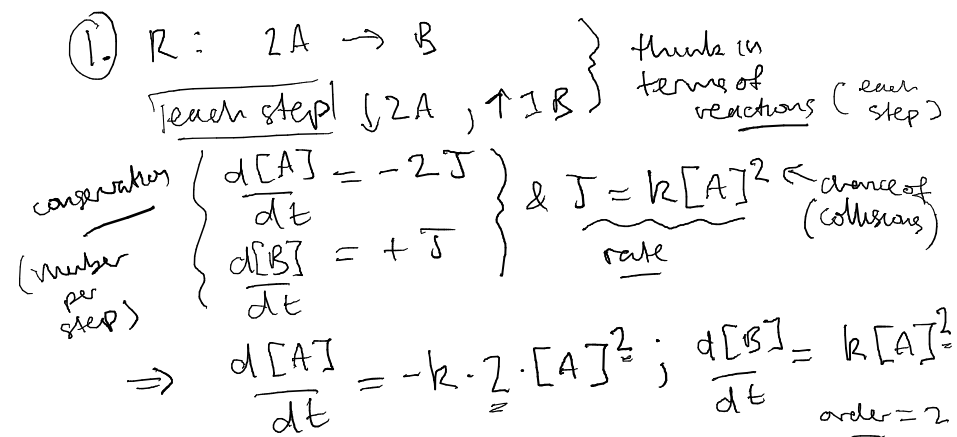 1. R : 2A → B
[each step] ↓2A , ↑1B } think in terms of reactions (each step)
conservation (number per step)
{ d[A]/dt = -2J
d[B]/dt = + J } & J = k[A]² ← chance of (collisions)
rate
⇒ d[A]/dt = -k·2·[A]² ; d[B]/dt = k[A]²
order = 2